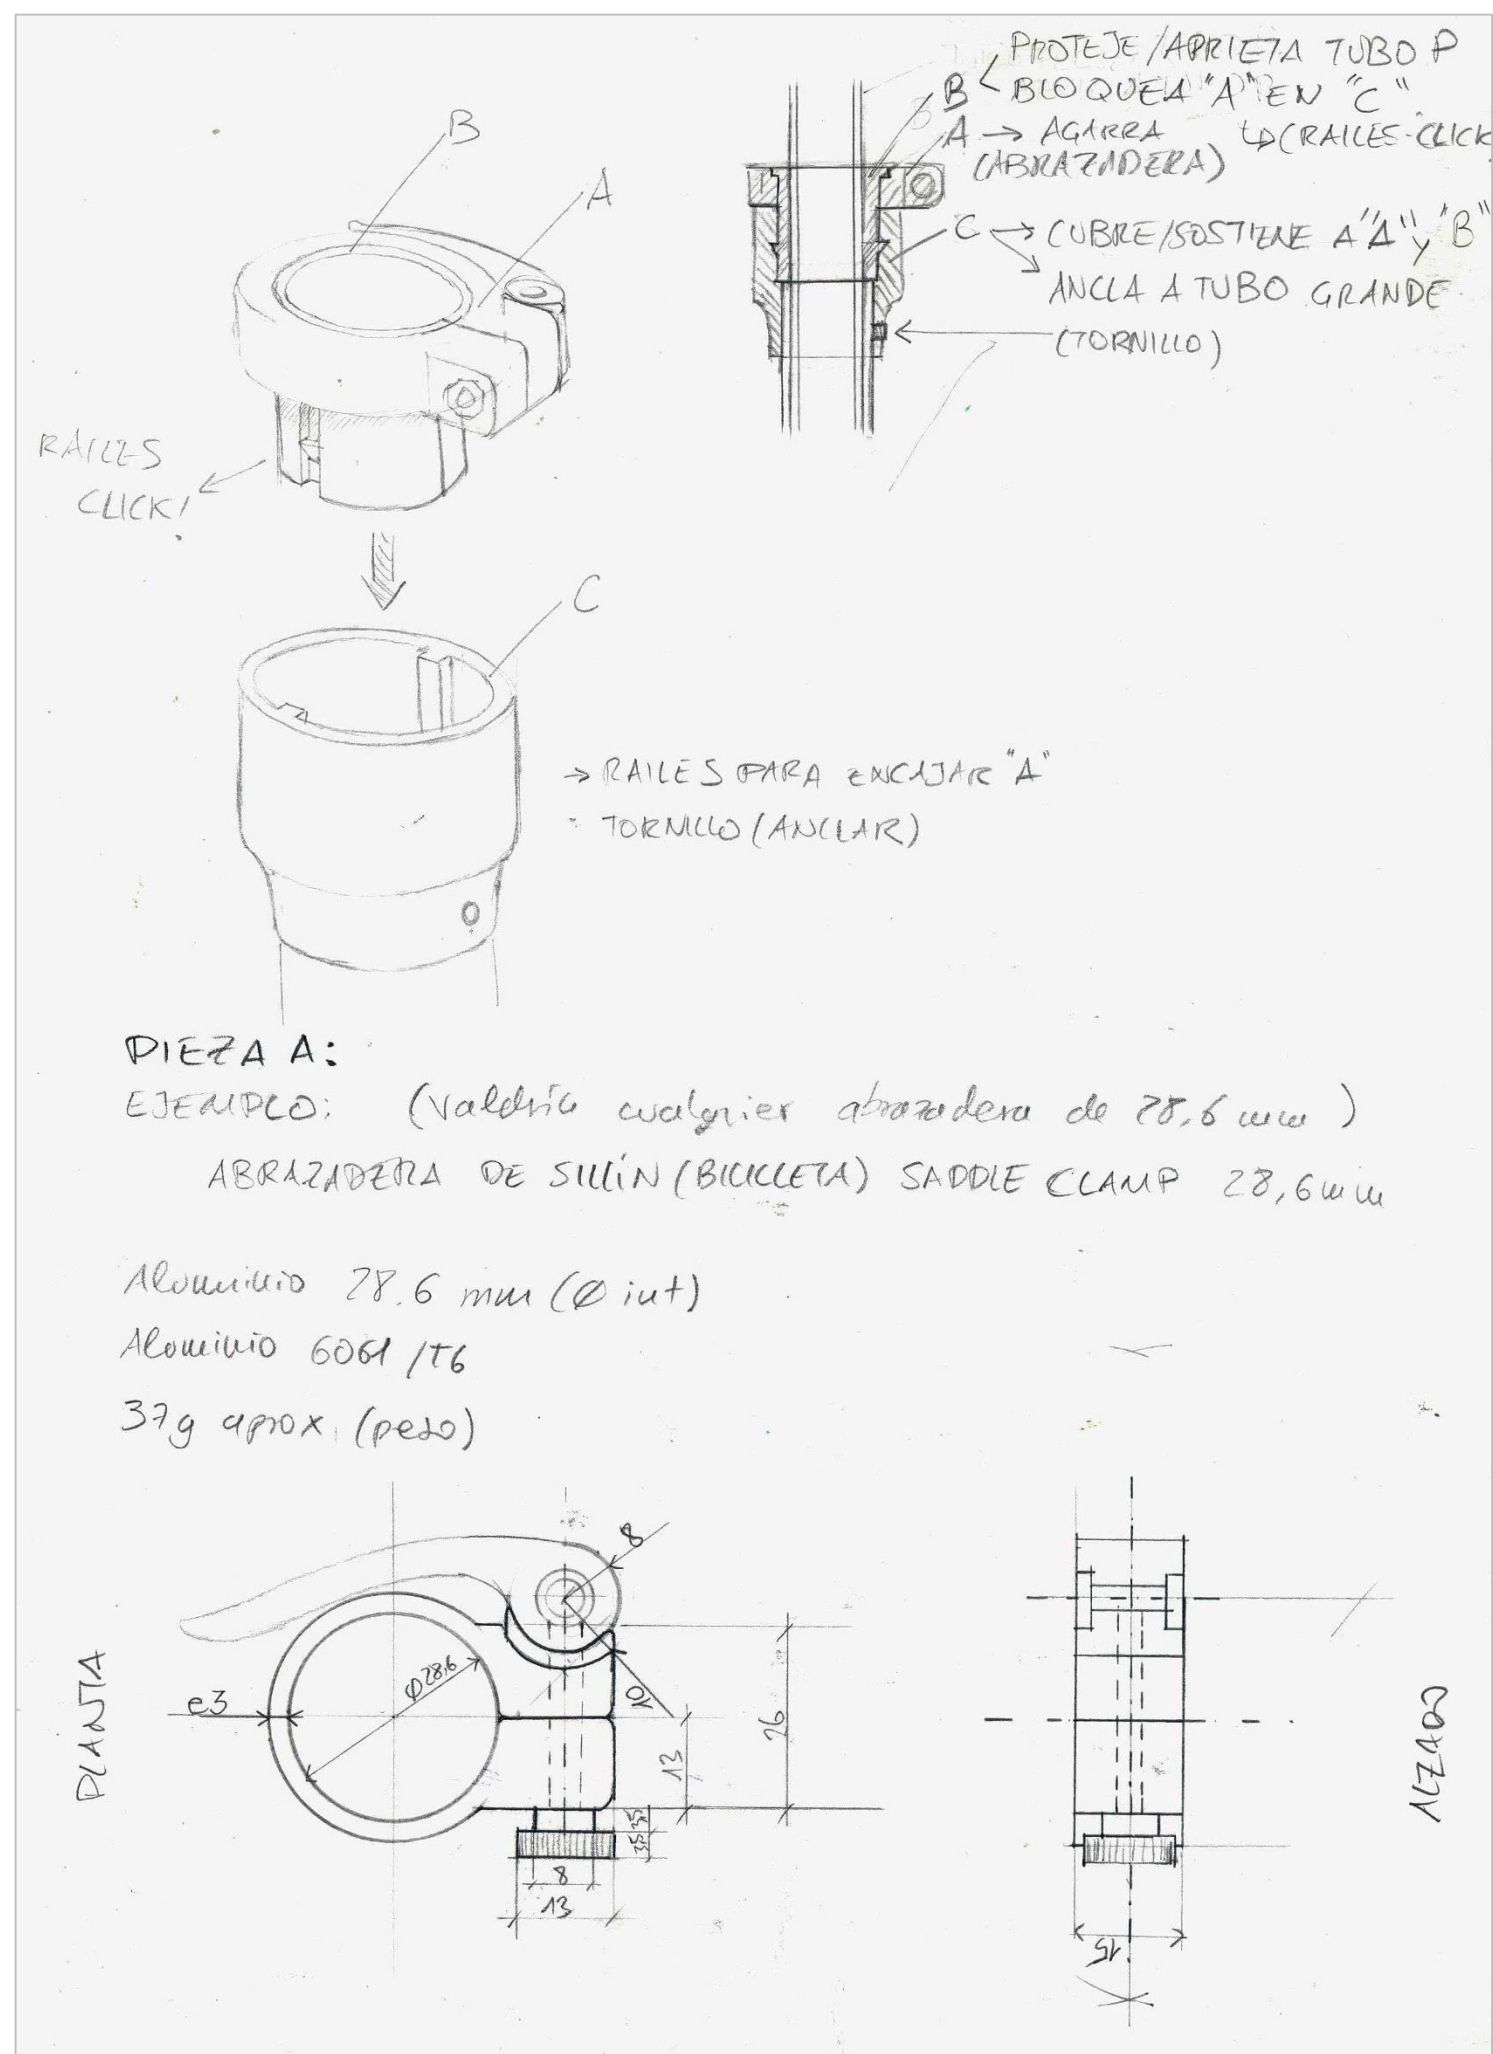 PROTEJE/APRIETA TUBO P
B
BLOQUEA "A" EN "C"
A → AGARRA
(ABRAZADERA)
↳(RAILES-CLICK
C → CUBRE/SOSTIENE A "A" y "B"
ANCLA A TUBO GRANDE
(TORNILLO)
B
A
RAILES
CLICK!
C
→ RAILES PARA ENCAJAR "A"
TORNILLO (ANCLAR)
PIEZA A:
EJEMPLO: (Valdría cualquier abrazadera de 28,6 mm)
ABRAZADERA DE SILLÍN (BICICLETA) SADDLE CLAMP 28,6mm
Aluminio 28.6 mm (Ø int)
Aluminio 6061/T6
37g aprox. (peso)
PLANTA
e3
Ø28,6
8
10
26
13
3,5
3,5
8
13
15
ALZADO